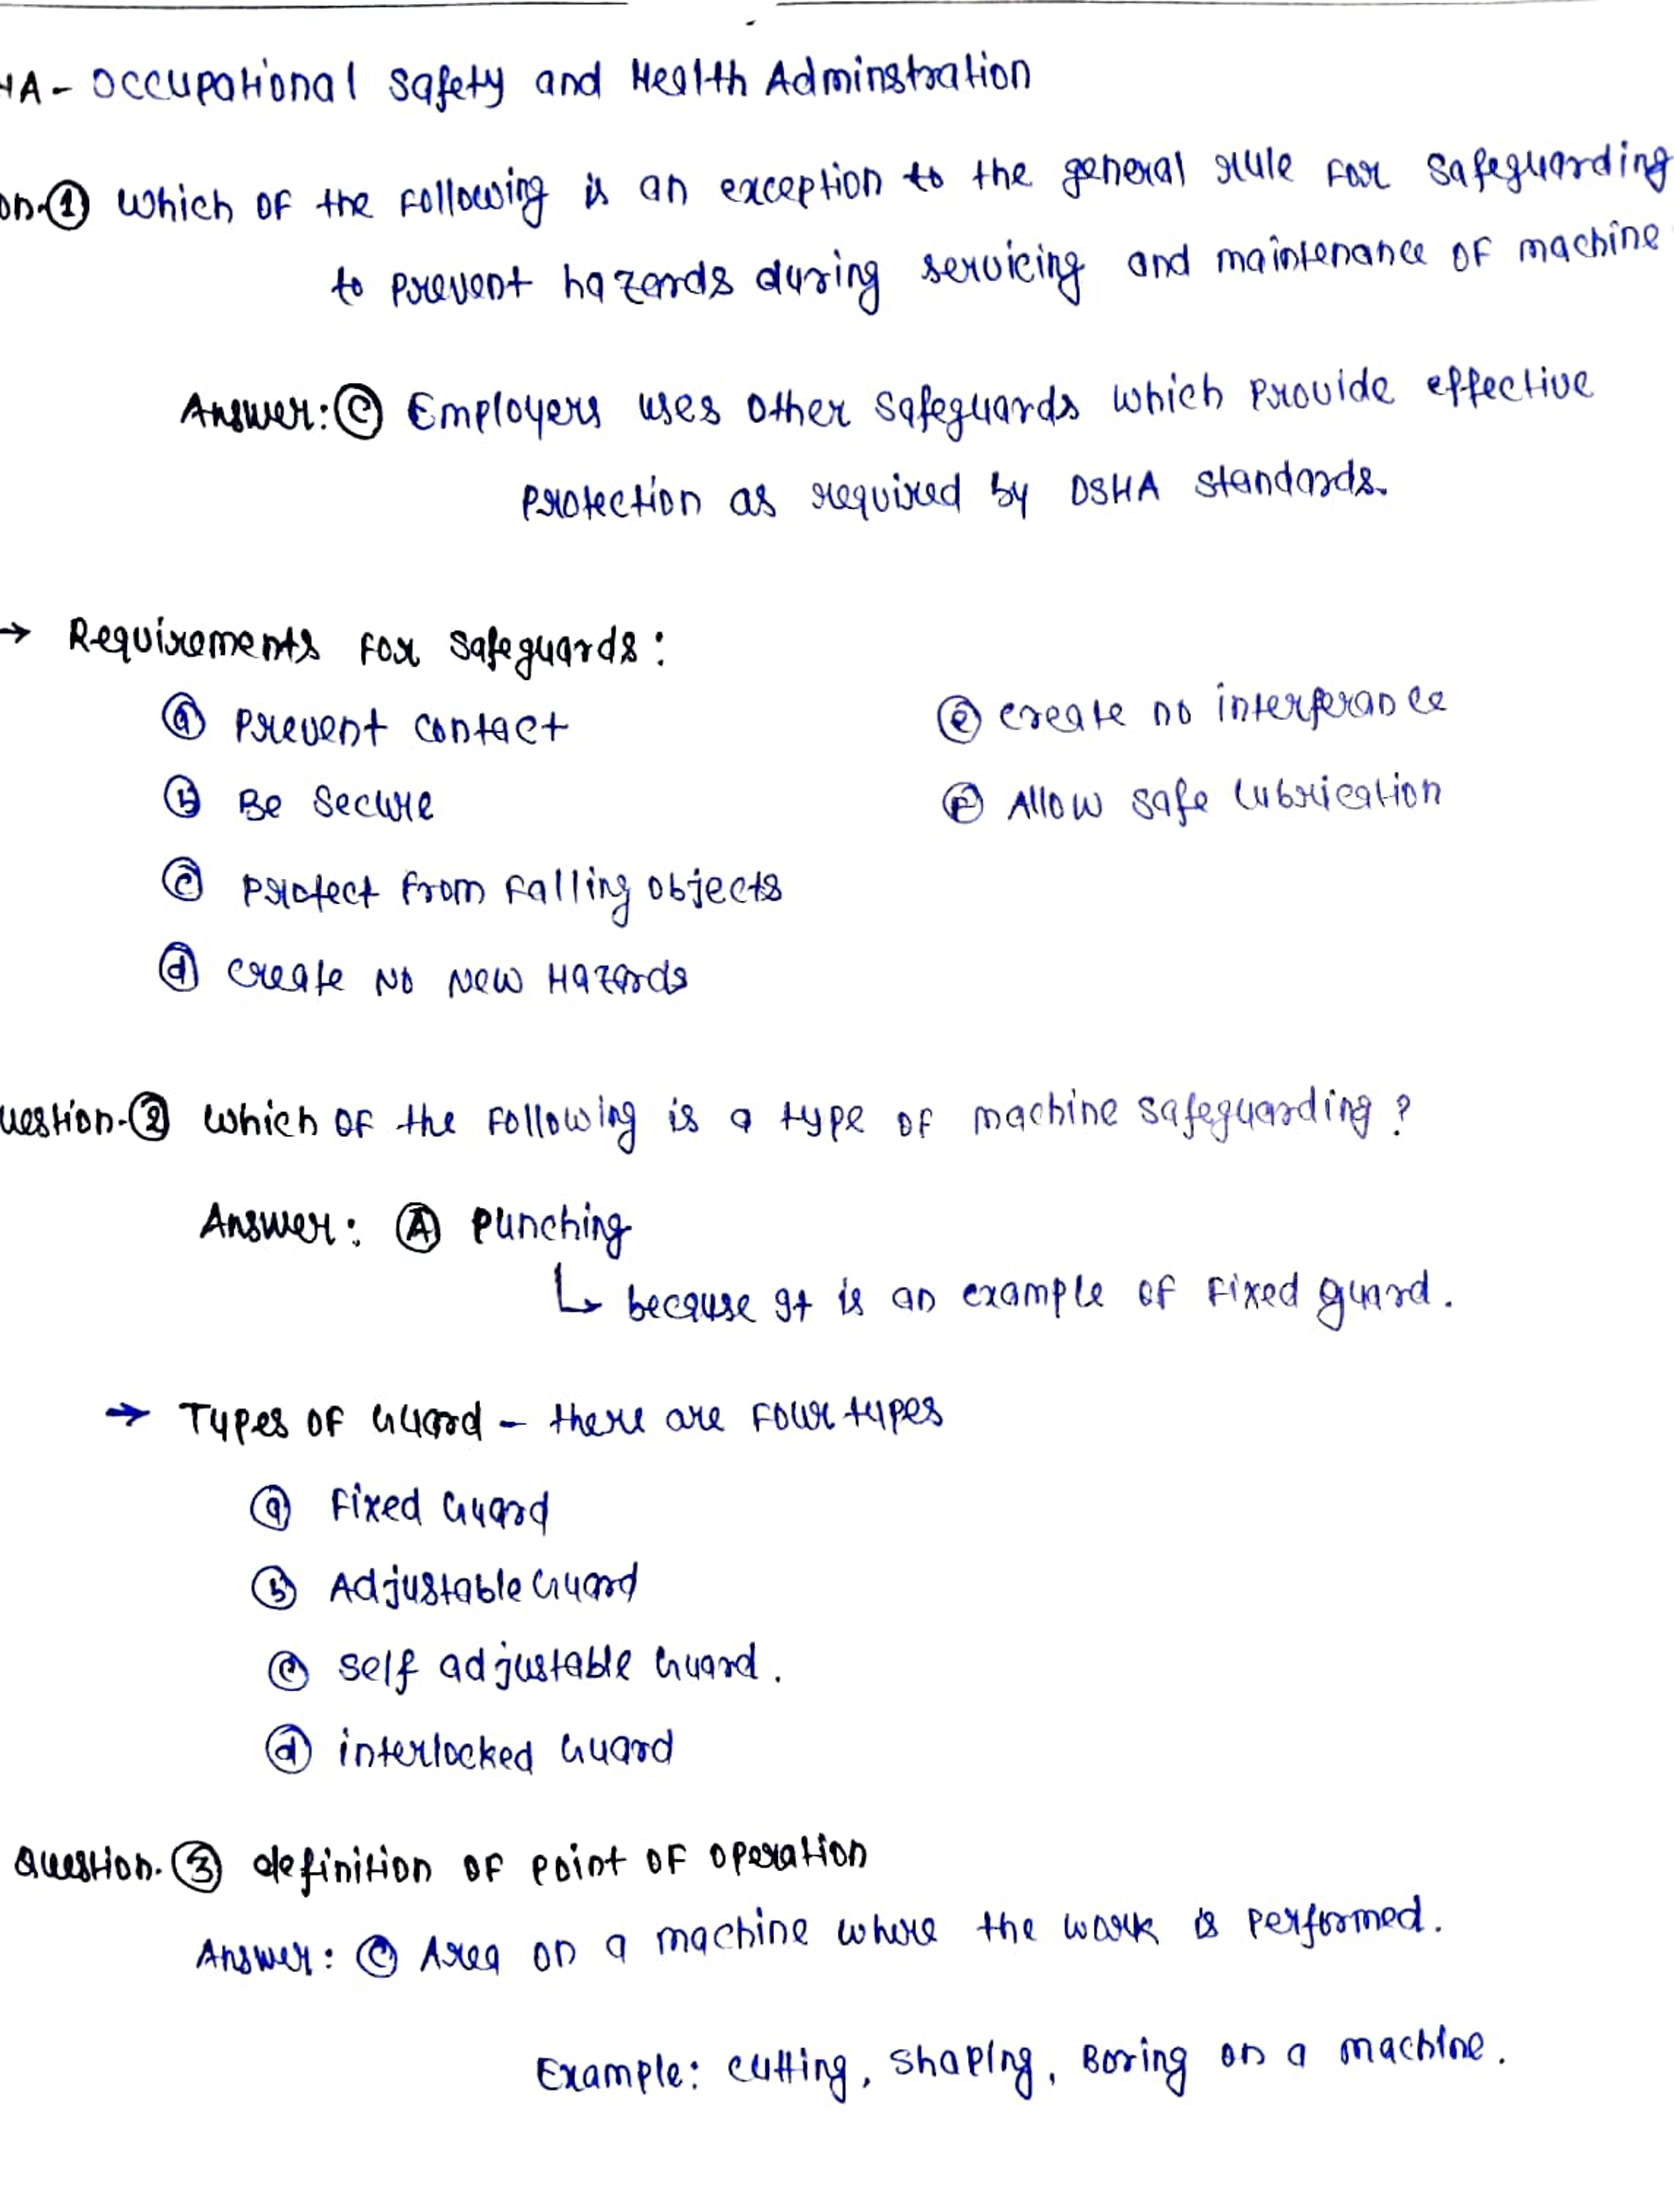 HA - Occupational Safety and Health Adminstration
on-① Which of the following is an exception to the general rule for safeguarding
to prevent hazards during servicing and maintenance of machine
Answer: Ⓒ Employers uses other safeguards which provide effective
protection as required by OSHA standards.
→ Requirements for safeguards:
ⓐ Prevent contact
ⓑ Be Secure
ⓒ Protect from falling objects
ⓓ Create No New Hazards
ⓔ create no interferance
ⓕ Allow safe lubrication
uestion-② Which of the following is a type of machine safeguarding?
Answer: Ⓐ Punching
↳ because It is an example of Fixed guard.
→ Types of Guard - there are four types
ⓐ Fixed Guard
ⓑ Adjustable Guard
ⓒ self adjustable Guard.
ⓓ interlocked Guard
Question-③ definition of point of operation
Answer: Ⓒ Area on a machine where the work is performed.
Example: cutting, shaping, Boring on a machine.